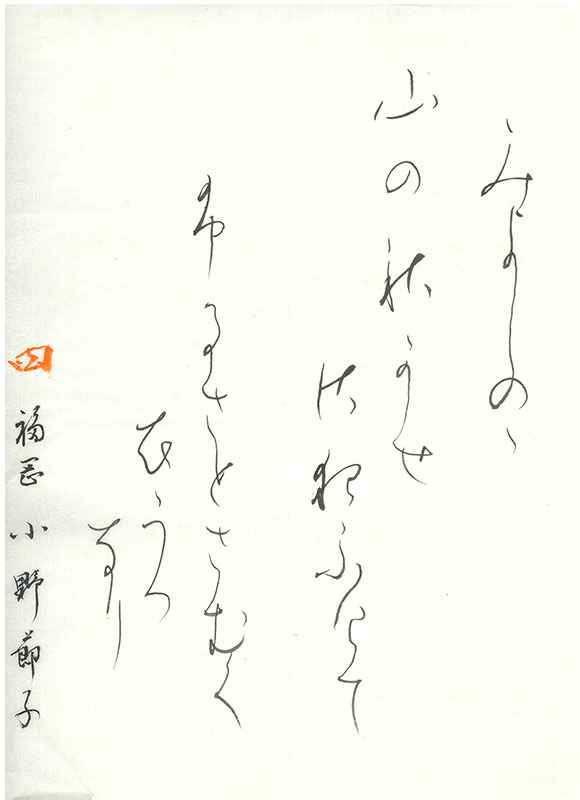 みよしのゝ
山の秋かせ
さ夜ふけて
布るさとさむく
衣うつ
なり
福岡 小野節子